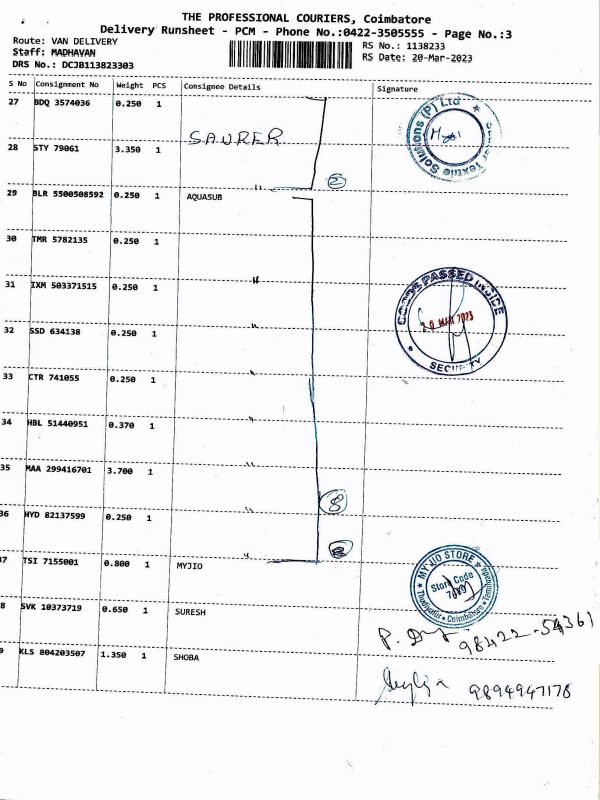 THE PROFESSIONAL COURIERS, Coimbatore
Delivery Runsheet - PCM - Phone No.:0422-3505555 - Page No.:3
Route: VAN DELIVERY
Staff: MADHAVAN
DRS No.: DCJB113823303
RS No.: 1138233
RS Date: 20-Mar-2023
S No Consignment No Weight PCS Consignee Details Signature
27 BDQ 3574036 0.250 1
SAURER
28 STY 79061 3.350 1 "
(P) Ltd
Textile Solutions
29 BLR 5500508592 0.250 1 AQUASUB
30 TMR 5782135 0.250 1
31 IXM 503371515 0.250 1 "
32 SSD 634138 0.250 1 "
GOODS PASSED INSIDE
20 MAR 2023
SECURITY
33 CTR 741055 0.250 1 "
34 HBL 51440951 0.370 1 "
35 MAA 299416701 3.700 1 "
8
36 HYD 82137599 0.250 1 "
37 TSI 7155001 0.800 1 MYJIO
MY JIO STORE
Store Code
Coimbatore
8 SVK 10373719 0.650 1 SURESH
98422-54361
9 KLS 804203507 1.350 1 SHOBA
9894947178